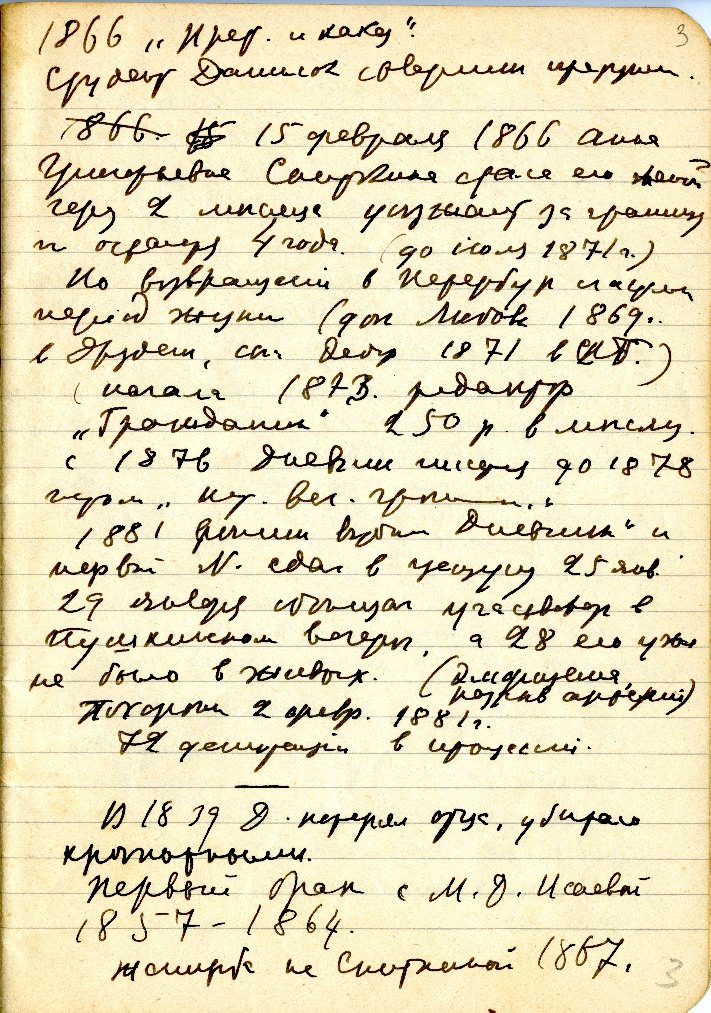 3
1866 „Прест. и наказ“.
Студент Данилов совершил преступл.
1866. 15 15 февраля 1866 Анна
Григорьевна Сниткина стала его женой
через 2 месяца уезжают за границу
и 4 года. (до июля 1871 г.)
По возвращении в Петербург
период жизни (дочь Любовь 1869.
в Дрездене, сын Федор 1871 в СПБ.)
(начала 1873. редактор
„Гражданин“ 250 р. в месяц.
с 1876 Дневник писателя до 1878
1881 Дневник“ и
первый N. сдал в цензуру 25 янв.
29 января обещал участвовать в
Пушкинском вечере, а 28 его уже
не было в живых. (Эмфизема,
разрыв артерии)
Похороны 2 февр. 1881 г.
72 депутации в процессии.
В 1839 Д. потерял отца, убитого
крепостными.
Первый брак с М. Д. Исаевой
1857 – 1864.
женитьба на Сниткиной 1867.
3